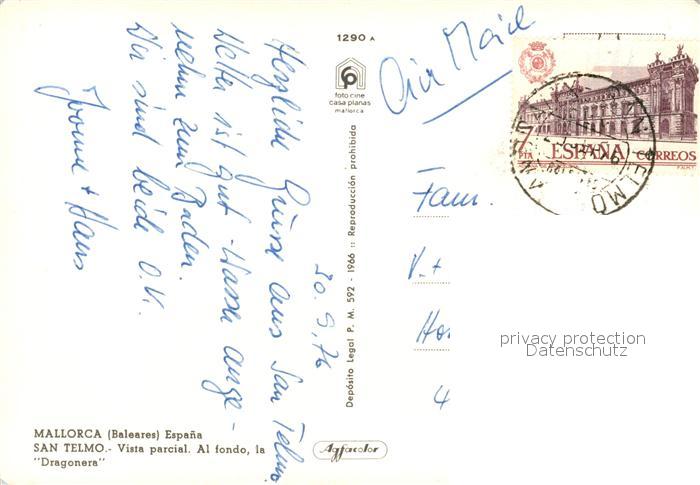 1290 A
foto cine
casa planas
mallorca
Air Mail
7
PTA
ESPAÑA
CORREOS
TELMO
20.9.76
Herzliche Grüsse aus San Telmo
Wetter ist gut - Wasser ange-
nehm zum Baden.
Wir sind beide O.K.
Yvonne + Hans
Depósito Legal P. M. 592 - 1966 :: Reproducción prohibida
Fam.
V. +
4
privacy protection
Datenschutz
MALLORCA (Baleares) España
SAN TELMO.- Vista parcial. Al fondo, la
"Dragonera"
Agfacolor